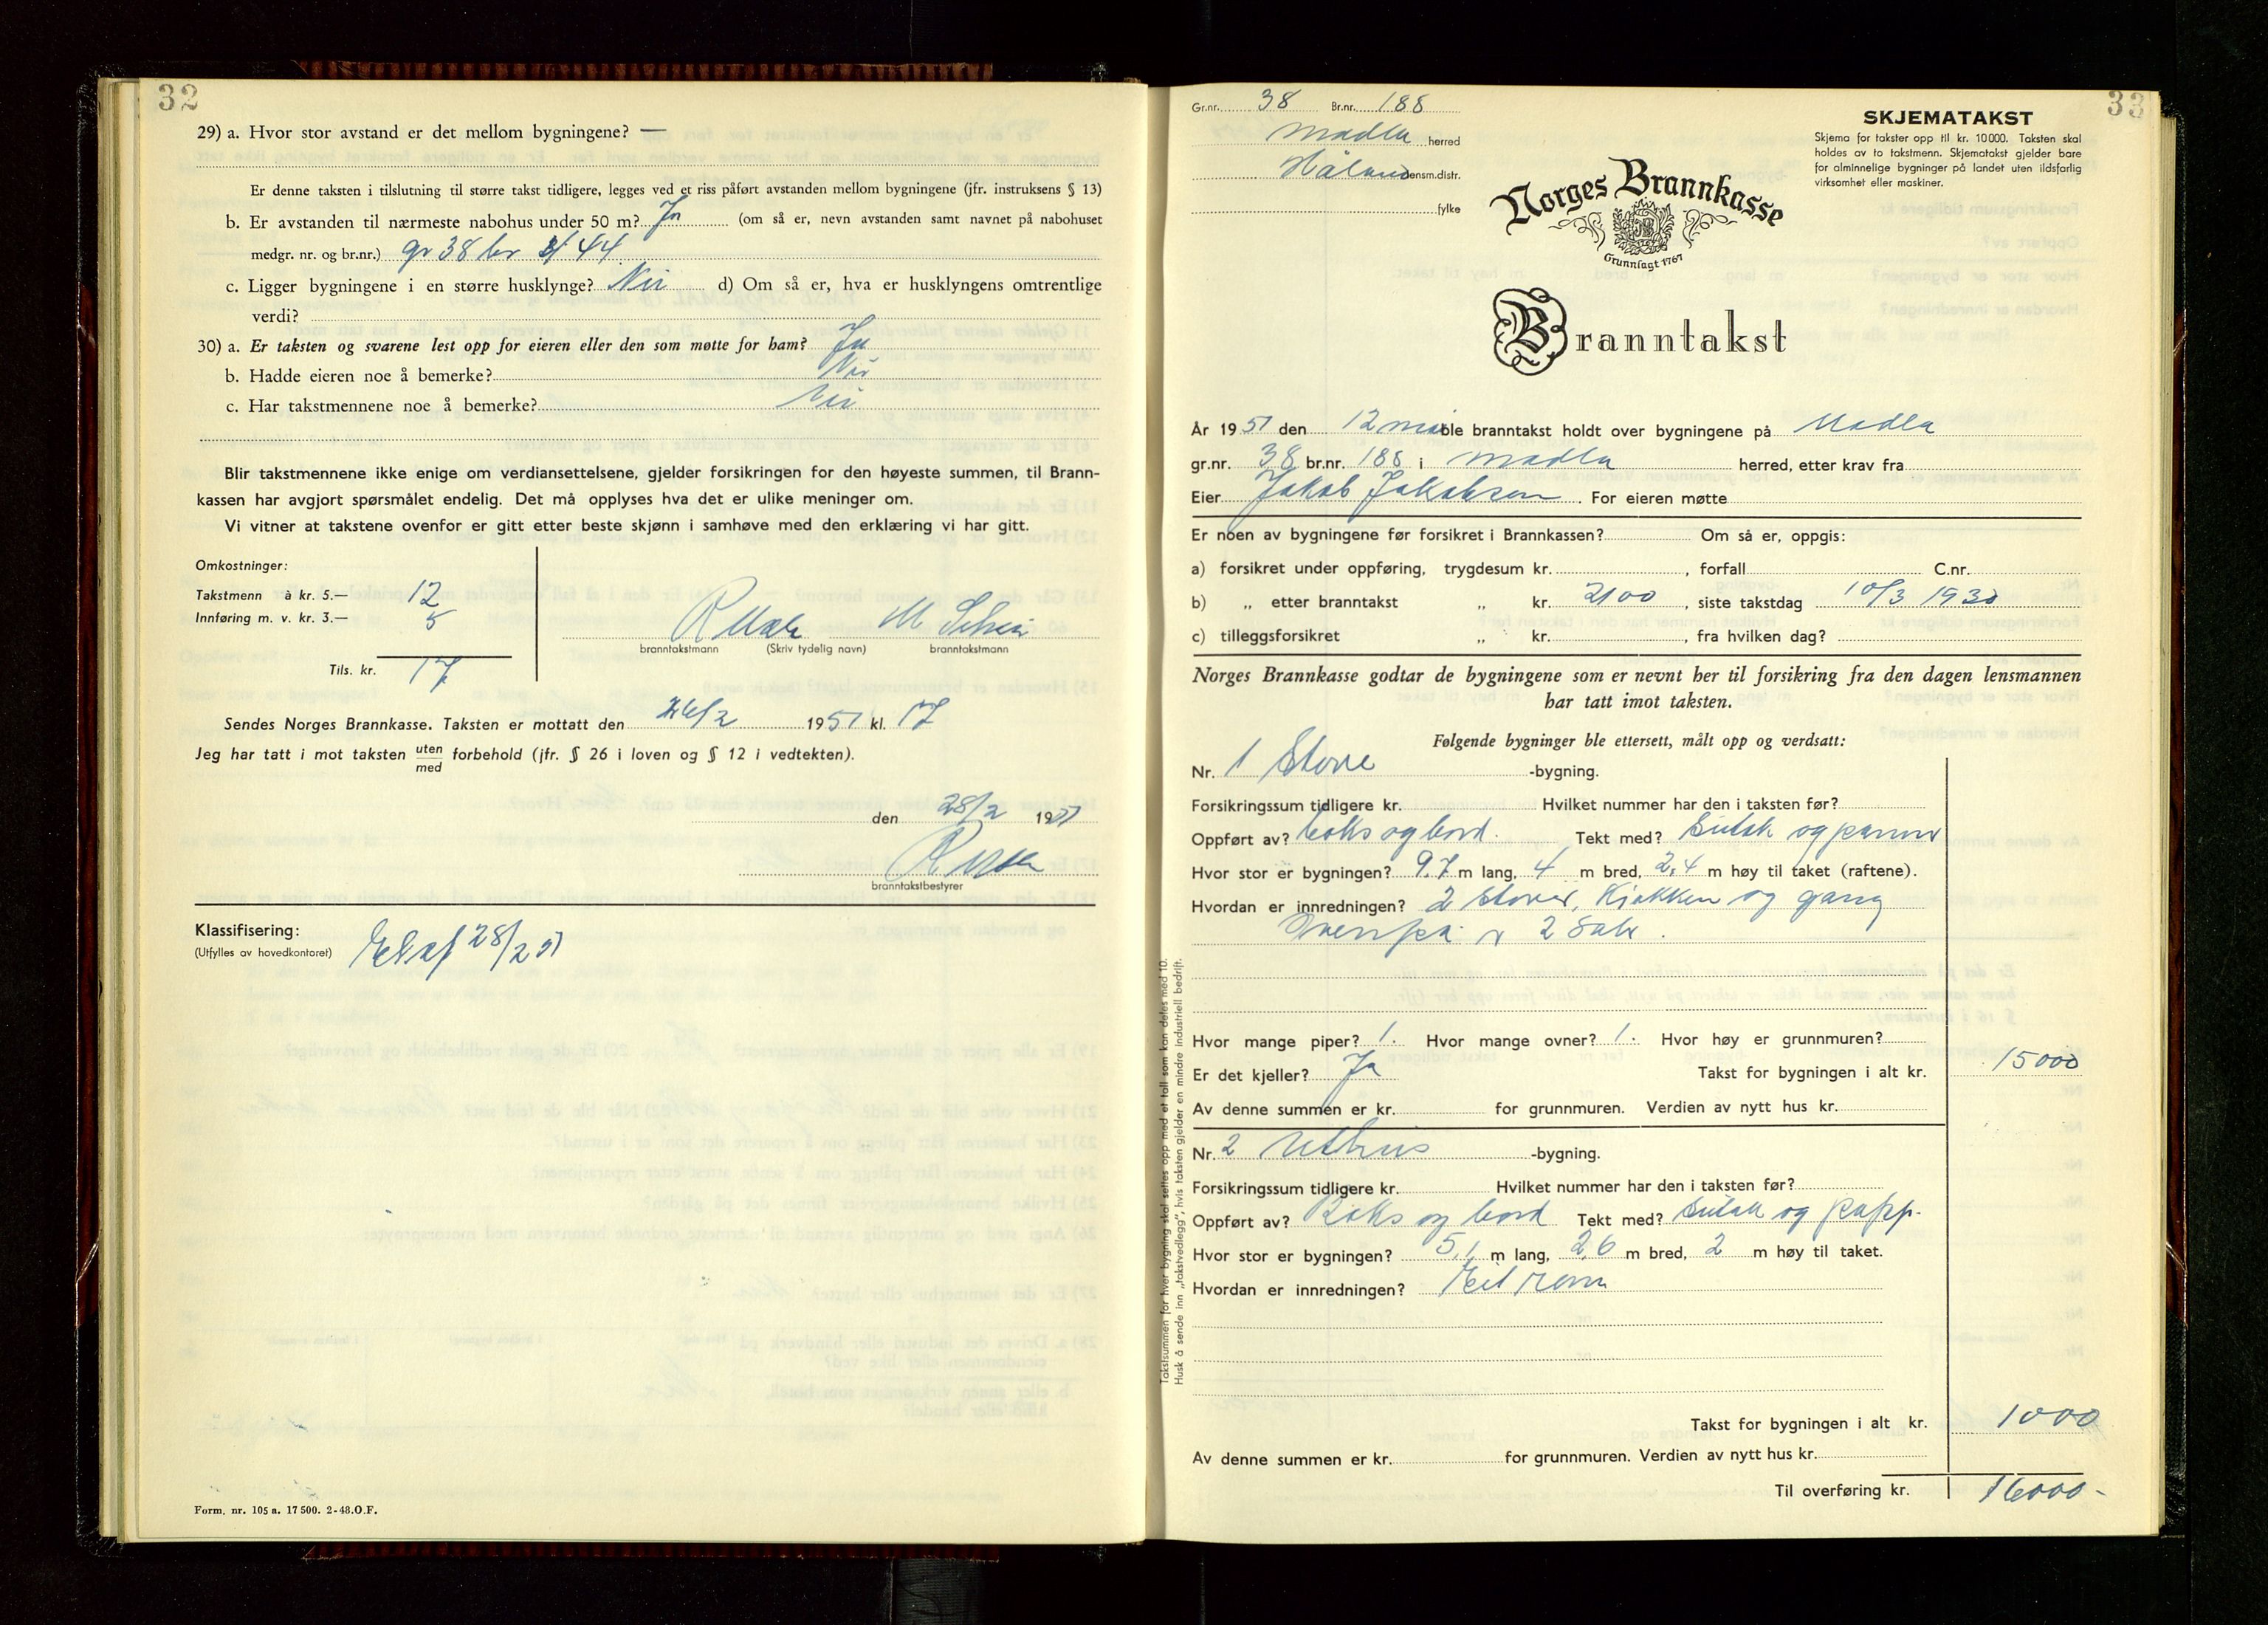 32
29) a. Hvor stor avstand er det mellom bygningene? —
Er denne taksten i tilslutning til større takst tidligere, legges ved et riss påført avstanden mellom bygningene (jfr. instruksens § 13)
b. Er avstanden til nærmeste nabohus under 50 m? Ja (om så er, nevn avstanden samt navnet på nabohuset
medgr. nr. og br.nr.) gr 38 br 44
c. Ligger bygningene i en større husklynge? Nei d) Om så er, hva er husklyngens omtrentlige
verdi?
30) a. Er taksten og svarene lest opp for eieren eller den som møtte for ham? Ja
b. Hadde eieren noe å bemerke? Nei
c. Har takstmennene noe å bemerke? Nei
Blir takstmennene ikke enige om verdiansettelsene, gjelder forsikringen for den høyeste summen, til Brann-
kassen har avgjort spørsmålet endelig. Det må opplyses hva det er ulike meninger om.
Vi vitner at takstene ovenfor er gitt etter beste skjønn i samhøve med den erklæring vi har gitt.
Omkostninger:
Takstmenn à kr. 5.— 12
Innføring m. v. kr. 3.— 5
branntakstmann (Skriv tydelig navn) branntakstmann
Tils. kr. 17
Sendes Norges Brannkasse. Taksten er mottatt den 26/2 1951 kl. 17
Jeg har tatt i mot taksten uten med forbehold (jfr. § 26 i loven og § 12 i vedtekten).
den 28/2 1951
branntakstbestyrer
Klassifisering:
(Utfylles av hovedkontoret) 28/2 51
Form. nr. 105 a. 17 500. 2-48. O.F.
33
Gr.nr. 38 Br.nr. 188
Madla herred
Håland lensm.distr.
fylke
SKJEMATAKST
Skjema for takster opp til kr. 10 000. Taksten skal
holdes av to takstmenn. Skjematakst gjelder bare
for alminnelige bygninger på landet uten ildsfarlig
virksomhet eller maskiner.
Norges Brannkasse
Grunnlagt 1767
Branntakst
År 1951 den 12 mai ble branntakst holdt over bygningene på Madla
gr.nr. 38 br.nr. 188 i Madla herred, etter krav fra
Eier Jakob Jakobsen. For eieren møtte
Er noen av bygningene før forsikret i Brannkassen? Om så er, oppgis:
a) forsikret under oppføring, trygdesum kr. , forfall C.nr.
b) „ etter branntakst „ kr. 2100, siste takstdag 10/3 1930
c) tilleggsforsikret „ kr. , fra hvilken dag?
Norges Brannkasse godtar de bygningene som er nevnt her til forsikring fra den dagen lensmannen
har tatt imot taksten.
Følgende bygninger ble ettersett, målt opp og verdsatt:
Nr. 1 Stove -bygning.
Forsikringssum tidligere kr. Hvilket nummer har den i taksten før?
Oppført av? Loks og bord. Tekt med? Sutak og panner
Hvor stor er bygningen? 9.7 m lang, 4 m bred, 2.4 m høy til taket (raftene).
Hvordan er innredningen? 2 stover, Kjøkken og gang
Ovenpå 2 Sale.
Hvor mange piper? 1. Hvor mange ovner? 1. Hvor høy er grunnmuren?
Er det kjeller? Ja Takst for bygningen i alt kr. 15000
Av denne summen er kr. for grunnmuren. Verdien av nytt hus kr.
Nr. 2 Uthus -bygning.
Forsikringssum tidligere kr. Hvilket nummer har den i taksten før?
Oppført av? Loks og bord Tekt med? Sutak og papp.
Hvor stor er bygningen? 5,1 m lang, 2,6 m bred, 2 m høy til taket.
Hvordan er innredningen? Eit rom
Takst for bygningen i alt kr. 1000
Av denne summen er kr. for grunnmuren. Verdien av nytt hus kr.
Til overføring kr. 16000-
Takstsummen for hver bygning skal settes opp med et tall som kan deles med 10.
Husk å sende inn „takstvedlegg", hvis taksten gjelder en mindre industriell bedrift.